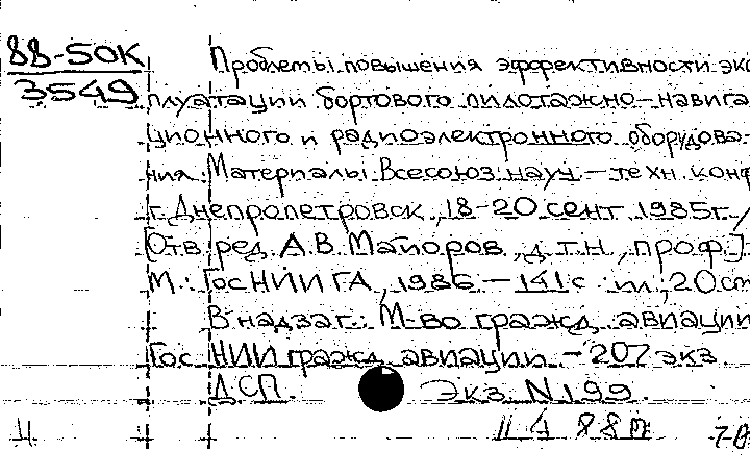 88-50К
3549
Проблемы повышения эффективности экс
плуатации бортового пилотажно-навига
ционного и радиоэлектронного оборудова-
ния. Материалы Всесоюз. науч-техн. конф
г. Днепропетровск, 18-20 сент 1985г./
[Отв. ред. А.В. Майоров, д.т.н., проф.]-
М.: ГосНИИ ГА, 1986 - 141с. ил.; 20см
В надзаг.: М-во гражд. авиации
Гос НИИ гражд. авиации. - 207 экз.
ДСП. Экз. N 199.